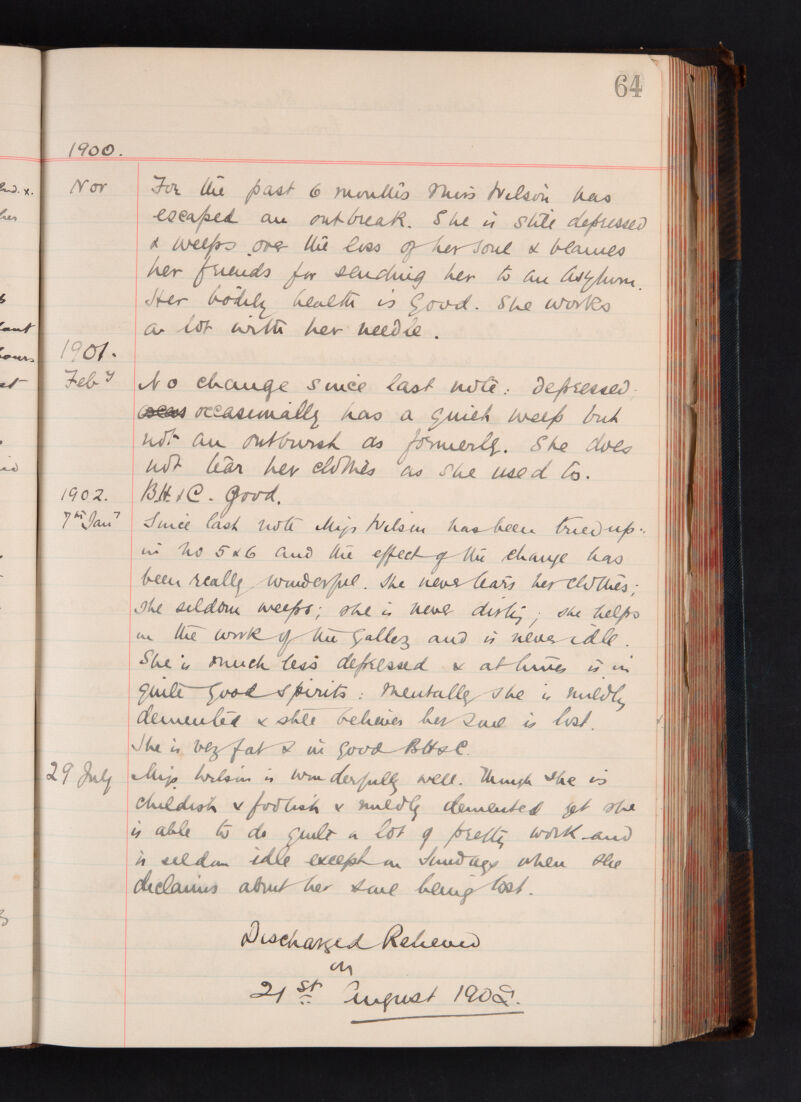 64
1900.
Nov For the past 6 months Miss Wilson has
escaped an outbreak. She is still depressed
& weeps over the loss of her soul & blames
her friends for sending her to an Asylum.
Her bodily health is good. She works
a lot with her needle.
1901.
Feby No change since last note: depressed:
occasionally has a quiet weep but
not an outburst as formerly. She does
not tear her clothes as she used to.
1902. B.H. & C. Good.
7th Jany Since last note Miss Wilson has been tried up
in No 5 & 6 and the effect of the change has
been really wonderful. She never tears her clothes;
she seldom weeps; she is never dirty; she helps
in the work of the Gallery and is never idle.
She is much less depressed & at times is in
quite good spirits: mentally she is mildly
demented & still believes her soul is lost.
She is very fat & in good BH&C.
29 July Miss Wilson is wonderfully well. Though she is
childish & foolish & mildly demented yet she
is able to do quite a lot of pretty work and
is seldom idle except on Sundays when she
declaims about her soul being lost.
Discharged Relieved
on
21st August 1902.